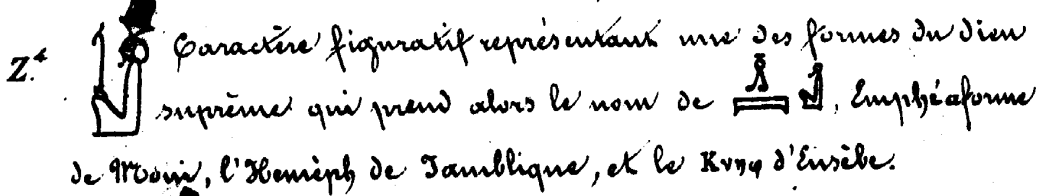 Z.⁴ Caractère figuratif représentant une des formes du dieu
suprême qui prend alors le nom de , Emphé, a forme
de Mouï, l'Hemèph de Jamblique, et le Κνηφ d'Eusèbe.